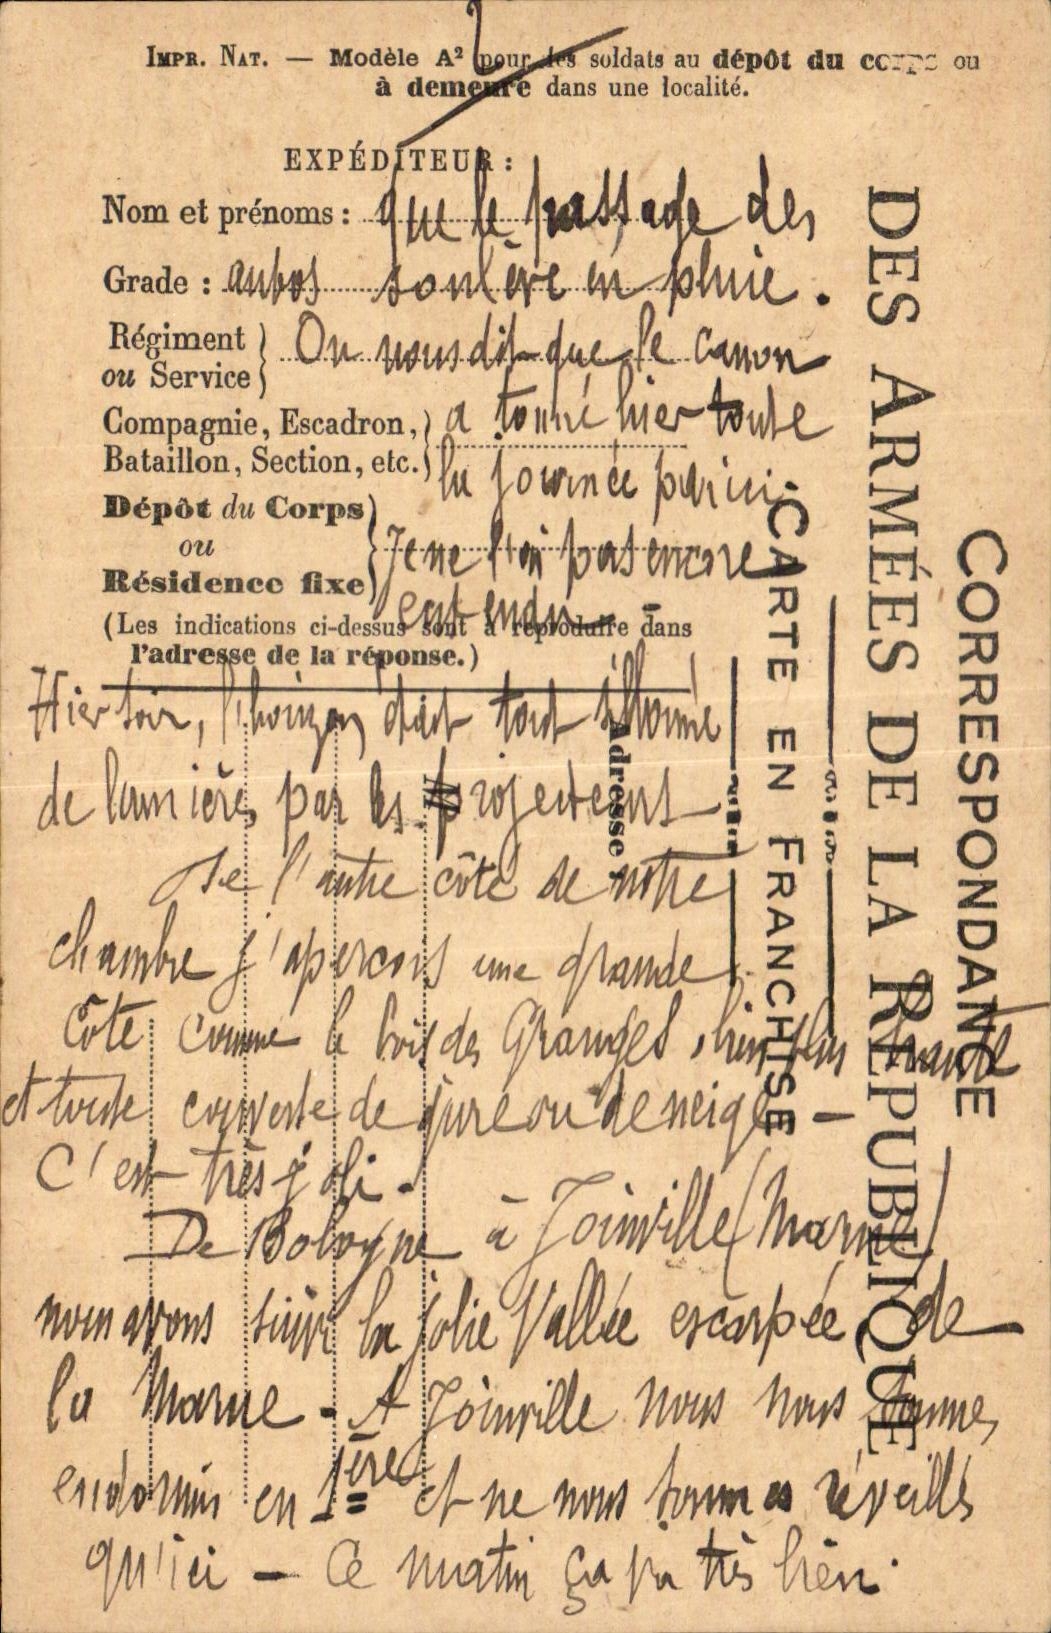 2
IMPR. NAT. — Modèle A² pour les soldats au dépôt du corps ou
à demeure dans une localité.
EXPÉDITEUR :
Nom et prénoms : que le passage des
Grade : autos soulève en pluie.
Régiment
ou Service
On nous dit que le canon
Compagnie, Escadron,
Bataillon, Section, etc.
a tonné hier toute
la journée par ici.
Dépôt du Corps
ou
Résidence fixe
Je ne l'ai pas encore
entendu —
(Les indications ci-dessus sont à reproduire dans
l'adresse de la réponse.)
Hier soir, l'horizon était tout illuminé
de lumières par les projecteurs —
De l'autre côté de notre
chambre j'aperçois une grande
côte comme le bois des Granges, bien plus haute
et toute couverte de givre ou de neige —
C'est très joli.
De Bologne à Joinville (Marne)
nous avons suivi la jolie Vallée escarpée de
la Marne - A Joinville nous nous sommes
endormis en 1ère et ne nous sommes réveillés
qu'ici — Ce matin ça va très bien.
Adresse
M
CARTE EN FRANCHISE
DES ARMÉES DE LA RÉPUBLIQUE
CORRESPONDANCE